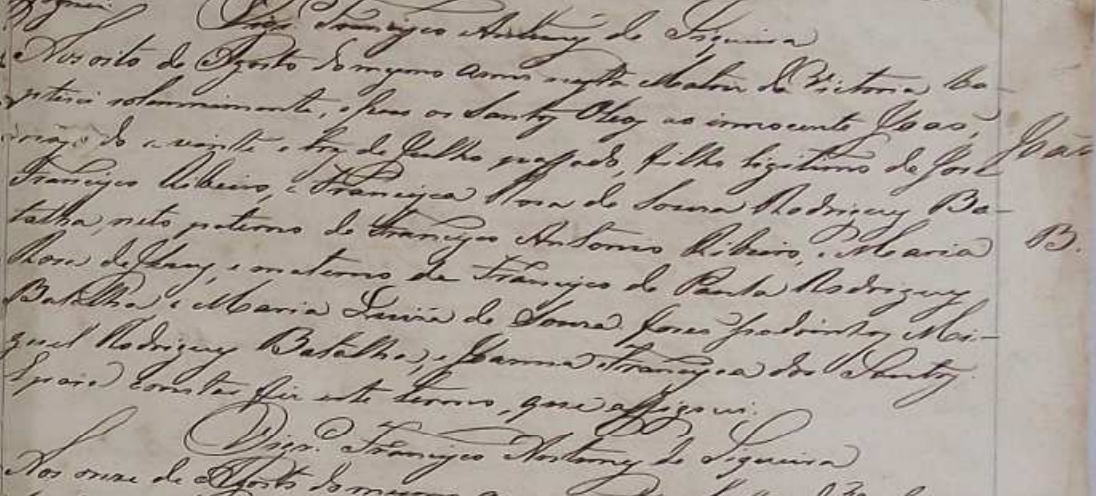 Vigr.º Francisco Antunes de Siqueira
Aos oito de Agosto do mesmo anno nesta Matriz da Victoria ba-
ptisei solemnimente, e puz os Santos Oleos ao innocente João,
João
nascido a vinte e tres de Julho passado, filho legitimo de José
Francisco Ribeiro, e Francisca Rosa de Souza Rodrigues Ba-
B.
talha, neto paterno de Francisco Antonio Ribeiro, e Maria
Rosa de Jesus, e materno de Francisco de Paula Rodrigues
Batalha e Maria Luiza de Souza. Forão padrinhos Mi-
guel Rodrigues Batalha, e Joanna Francisca dos Santos.
E para constar fiz este termo, que assignei.
Vigr.º Francisco Antunes de Siqueira
Aos onze de Agosto do mesmo